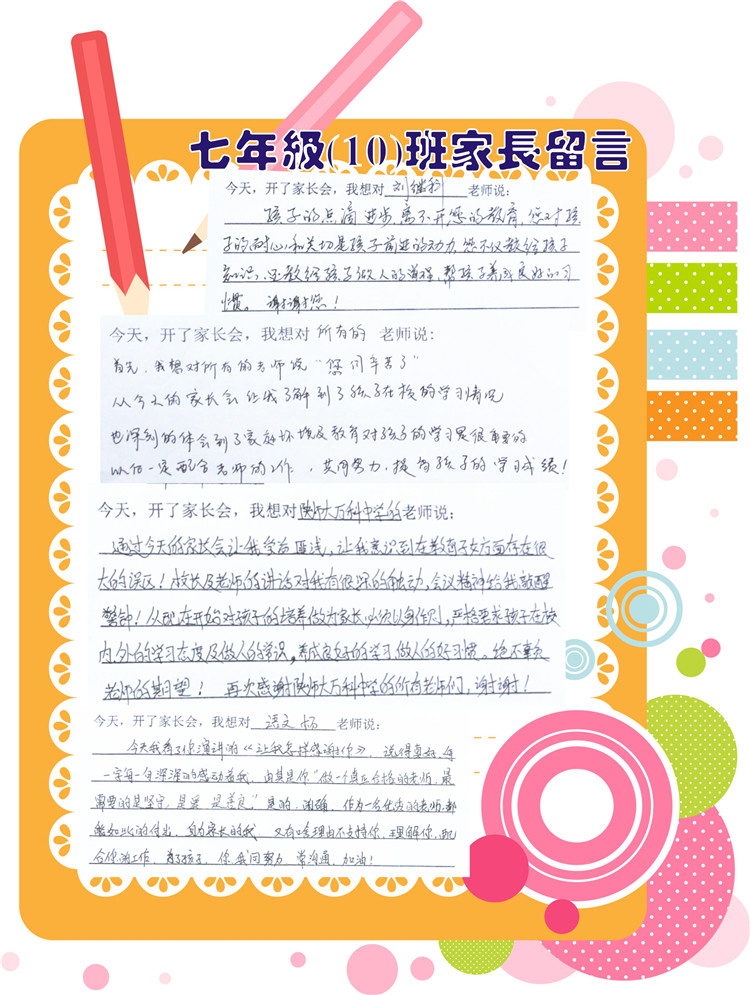 七年級(10)班家長留言
今天，开了家长会，我想对 刘继科 老师说：
孩子的点滴进步离不开您的教育，您对孩
子的耐心和关切是孩子前进的动力，您不仅教给孩子
知识，还教给孩子做人的道理，帮孩子养成良好的习
惯。谢谢您！
今天，开了家长会，我想对 所有的 老师说：
首先，我想对所有的老师说“您们辛苦了”
从今天的家长会让我了解到了孩子在校的学习情况
也深刻的体会到了家庭环境及教育对孩子的学习是很重要的
以后一定配合老师的工作，共同努力，提高孩子的学习成绩！
今天，开了家长会，我想对陕师大万科中学的老师说：
通过今天的家长会让我受益匪浅，让我意识到在教育子女方面存在很
大的误区！校长及老师的讲话对我有很深的触动，会议精神给我敲醒
警钟！从现在开始对孩子的培养做为家长必须以身作则，严格要求孩子在校
内、外的学习态度及做人的学识，养成良好的学习做人的好习惯。绝不辜负
老师的期望！ 再次感谢陕师大万科中学的所有老师们，谢谢！
今天，开了家长会，我想对 老师说：
今天我看了你演讲的《让我怎样感谢你》，说得真好，每
一字每一句深深的感动着我，尤其是你“做一个真正合格的老师，最
需要的是坚守，是爱，是善良”是的，的确，作为一名优秀的老师，都
能如此的付出，身为家长的我，又有啥理由不支持你、理解你、配
合你的工作，为了孩子，你我同努力，常沟通，加油！